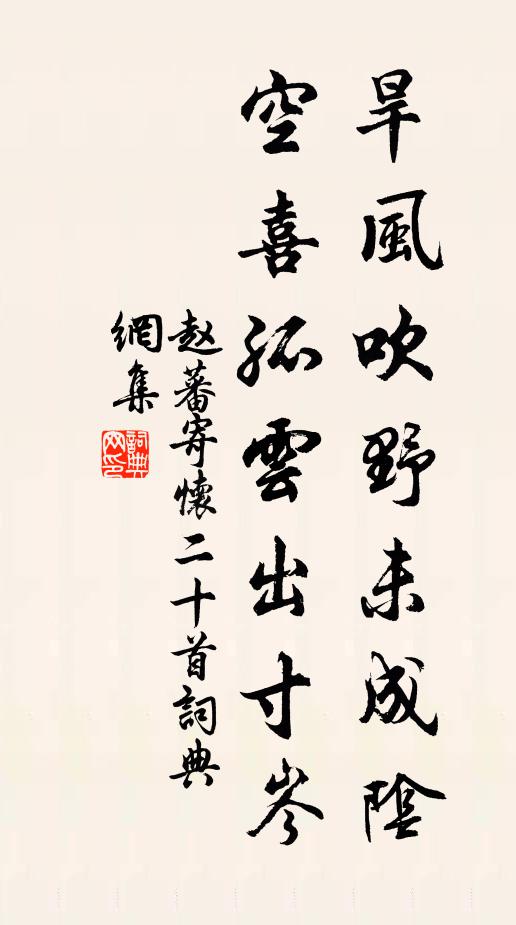 旱風吹野未成陰
空喜孤雲出寸岑
赵蕃寄懷二十首詞典
網集
詞典网印